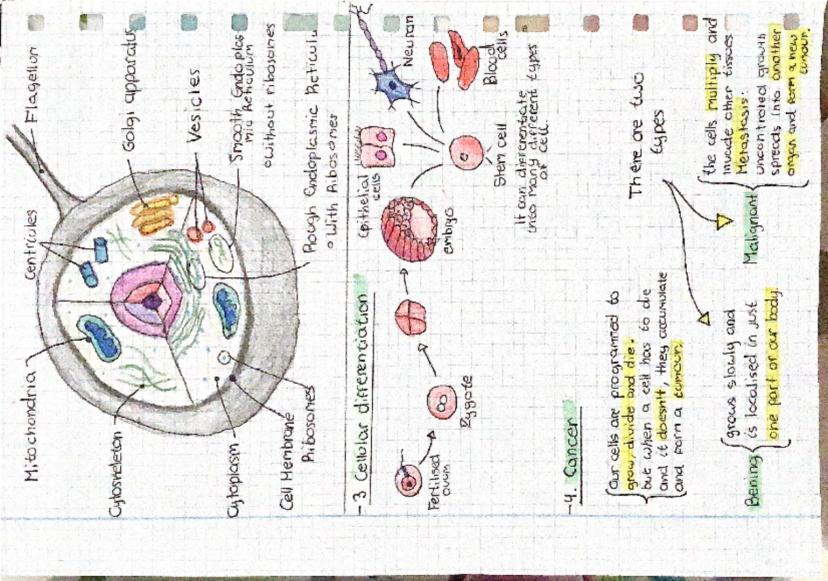 Mitochondria
Centricules
Flagellon
Golgi apparatus
Vesicles
Smooth Endoplas
mic Reticulum
○ without ribosomes
Rough Endoplasmic Reticulu
○ With Ribosomes
Cytoskeleton
Cytoplasm
Cell Membrane
Ribosomes
-3 Cellular differentiation
Fertilised
ovum
Zygote
embryo
Epithelial
cells
Neuron
Blood
cells
Stem cell
It can differentiate
into many different types
of cell.
-4. Cancer
Our cells are programmed to
grow, divide and die.
but when a cell has to die
and it doesn't, they accumulate
and form a tumour.
There are two
types
Bening
grows slowly and
is localised in just
one part of our body.
Malignant
the cells multiply and
invade other tissues
Metastasis:
uncontrolled growth
spreads into another
organ and form a new
tumour.